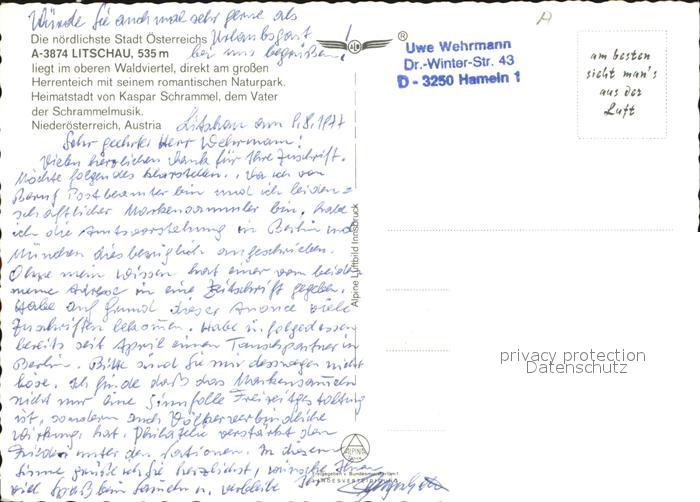 Würde Sie auch mal sehr gerne als
Urlaubsgast
bei uns begrüßen!
Die nördlichste Stadt Österreichs
A-3874 LITSCHAU, 535 m
liegt im oberen Waldviertel, direkt am großen
Herrenteich mit seinem romantischen Naturpark.
Heimatstadt von Kaspar Schrammel, dem Vater
der Schrammelmusik.
Niederösterreich, Austria
Litschau am 9.8.1977
Sehr geehrter Herr Wehrmann!
Vielen herzlichen Dank für Ihre Zuschrift.
Möchte folgendes klarstellen. Da ich von
Beruf Postbeamter bin und ich leiden=
schaftlicher Markensammler bin, habe
ich die Amtsvorstehung in Berlin und
München diesbezüglich angeschrieben.
Ohne mein Wissen hat einer von beiden
meine Adresse in eine Zeitschrift gegeben.
Habe auf Grund dieser Anonce viele
Zuschriften bekommen. Habe infolgedessen
bereits seit April einen Tauschpartner in
Berlin. Bitte sind Sie mir deswegen nicht
böse. Ich finde daß das Markensammeln
nicht nur eine sinnvolle Freizeitgestaltung
ist, sondern auch Völkerverbindliche
Wirkung hat. Philatelie verstärkt den
Frieden unter den Nationen. In diesem
Sinne grüße ich Sie herzlichst, wünsche Ihnen
viel Spaß beim Sammeln u. verbleibe Ihr
®
Uwe Wehrmann
Dr.-Winter-Str. 43
D - 3250 Hameln 1
am besten
sieht man's
aus der
Luft
Alpine Luftbild Innsbruck
ALPINE
privacy protection
Datenschutz